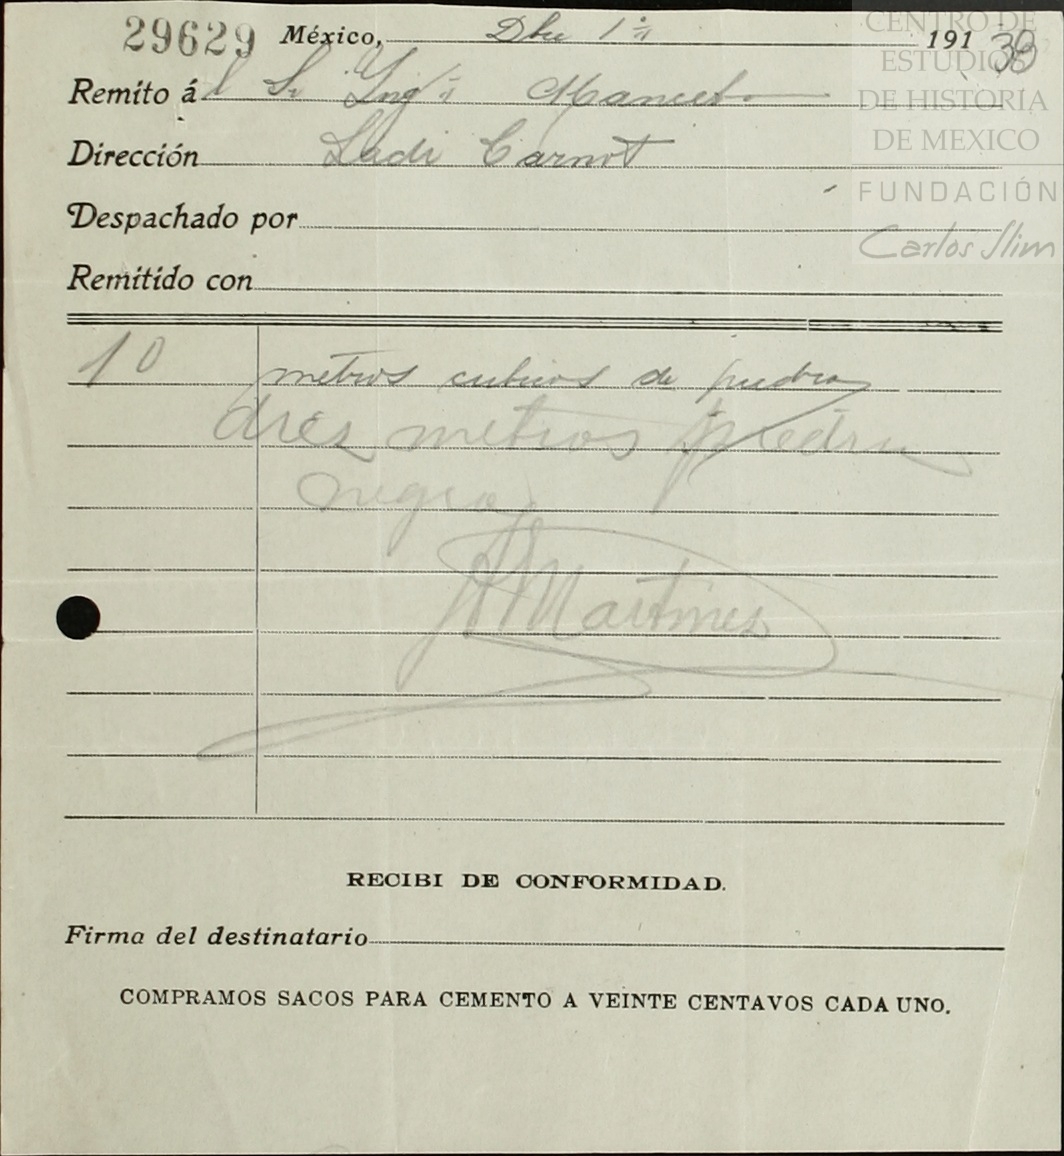 29629 México, Dbre 1º 191
CENTRO DE
ESTUDIOS
DE HISTORIA
DE MEXICO
FUNDACIÓN
Carlos Slim
Remito ál Sr Ingº
Dirección Sadi Carnot
Despachado por
Remitido con
10 metros cubicos de piedra
metros piedra
negra
Martinez
RECIBI DE CONFORMIDAD.
Firma del destinatario
COMPRAMOS SACOS PARA CEMENTO A VEINTE CENTAVOS CADA UNO.